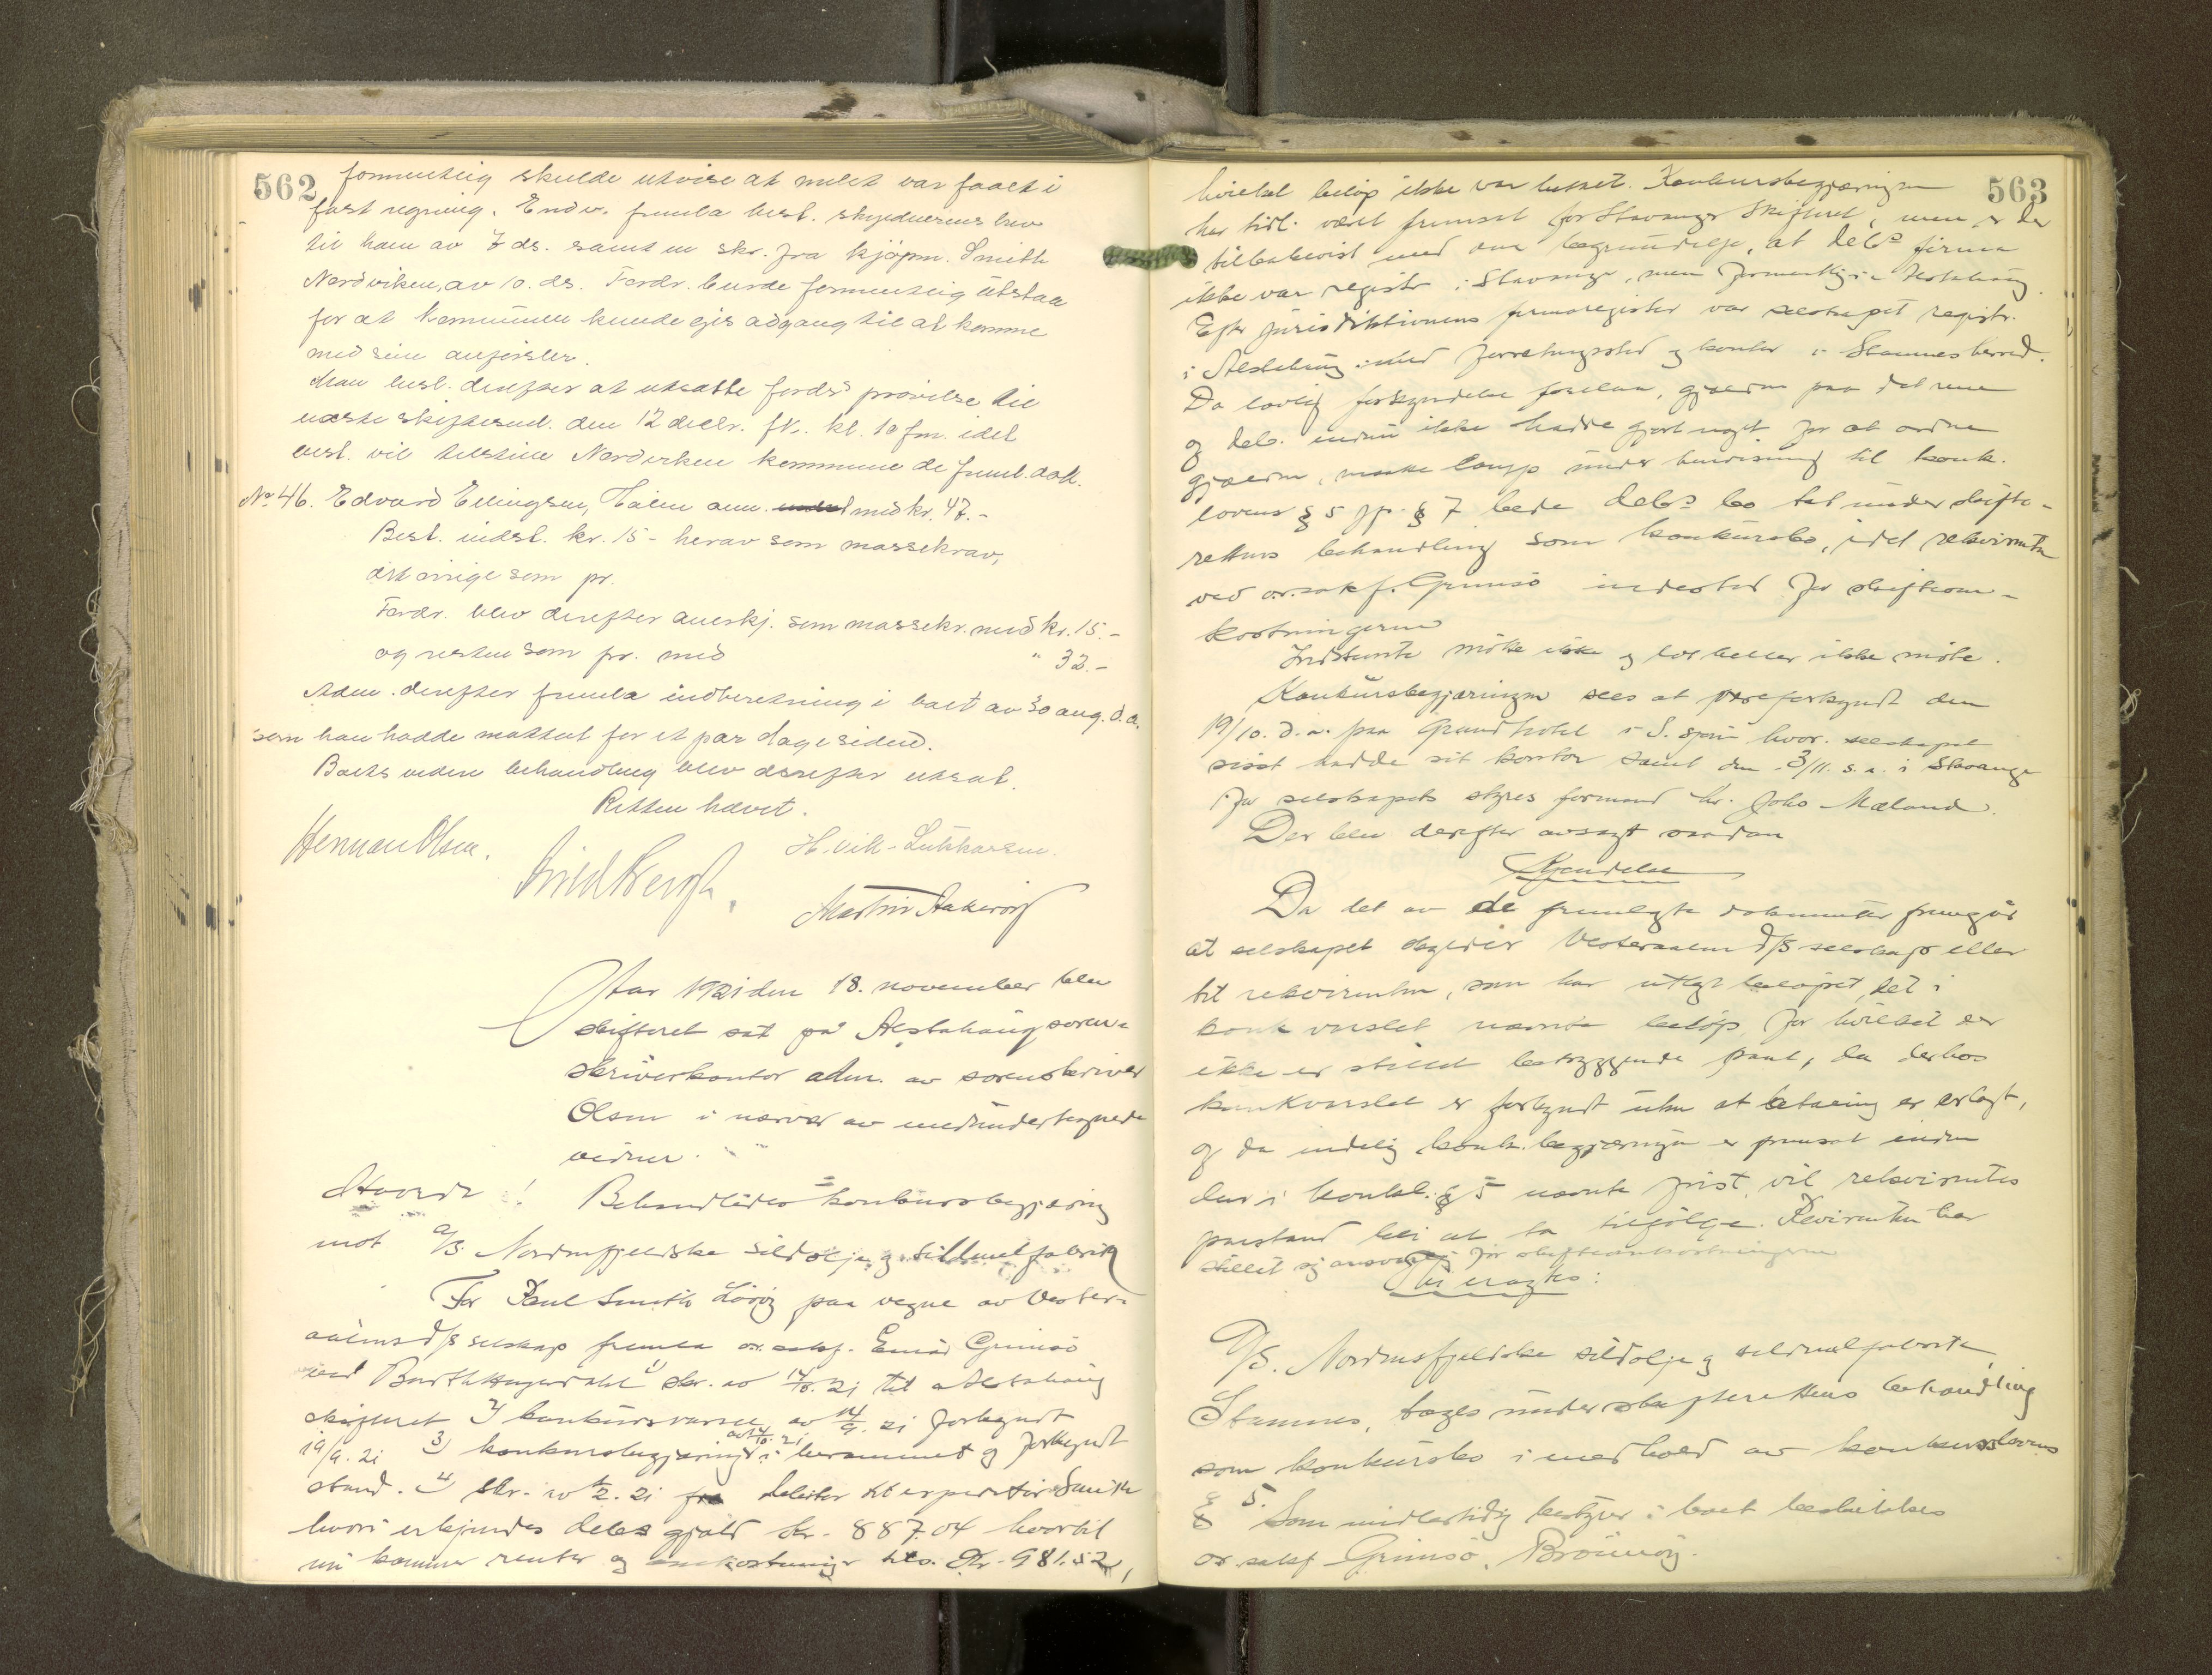 562
formentlig skulde utvise at melet var faaet i
fast regning. Endv. fremla best. skyldnerens brev
til ham av 7 ds. samt en skr. fra kjøpm. Smith
Nordviken, av 10. ds. Fordr. burde formentlig utstaa
for at kommunen kunde gis adgang til at komme
med sine anførsler.
Man besl. derefter at utsætte fords prøvelse til
næste skiftesml. den 12 decbr. fk. kl. 10 fm. idet
best. vil tilstille Nordviken kommune de freml. dok.
No 46. Edvard Ellingsen, anm. med kr. 47.-
Best. indst. kr. 15 - herav som massekrav,
det øvrige som pr.
Fordr. blev derefter anerkj. som massekr. med kr. 15.-
og resten som pr. med " 32.-
Adm. derefter fremla indberetning i boet av 30 aug. d.a.
som han hadde mottat for et par dage siden.
Boets videre behandling blev derefter utsat.
Retten hævet.
Herman Olsen. H. Vik-Lukkassen.
Martin Aakerøy
Aar 1921 den 18. november blev
skifteret sat på Alstahaug soren-
skriverkontor adm. av sorenskriver
Olsen i nærvær av medundertegnede
vidner.
Hvorda! Behandledes konkursbegjæring
mot A/S. Nordenfjeldske sildolje og sildmelfabrik
For Paul Smith paa vegne av Vester-
aalens d/s selskap fremla or. sakf. Einar Grimsø
ved 1) skr. av 14/10. 21 til Alstahaug
skifteret 2) konkursvarsel av 14/9. 21 forkyndt
19/9. 21 3) konkursbegjæring av 14/10. 21 i berammet og forkyndt
stand. 4) skr. av 21 fra debitor til expeditør Smith
hvori erkjendes debs gjæld kr. 887.04 hvortil
nu kommer renter og omkostninger tils. Kr. 981.52,
563
hvilket beløp ikke var betalt. Konkursbegjæringen
har tidl. været fremsat for Stavanger Skifteret, men er der
tilbakevist med den begrundelse, at debs firma
ikke var registr. i Stavanger, men formentlig i Alstahaug.
Efter jurisdiktionens firmaregister var selskapet registr.
i Alstahaug med forretningssted og kontor i Stamnes herred.
Da lovlig forkyndelse forelaa, gjælden paa det rene
og deb. endnu ikke hadde gjort noget for at ordne
gjælden, maatte komp. under henvisning til konk.
lovens § 5 jfr. § 7 bede debs bo tat under skifte-
rettens behandling som konkursbo, idet rekvirenten
ved or.sakf. Grimsø indestod for skifteom-
kostningerne
Indstevnte møtte ikke og lot heller ikke møte.
Konkursbegjæringen sees at være forkyndt den
19/10. d.a. paa Grand hotel i S. sjøen hvor selskapet
sidst hadde sit kontor samt den 3/11. s.a. i Stavanger
for selskapets styres formand hr. Johs Mæland.
Der blev derefter avsagt saadan
Kjendelse
Da det av de fremlagte dokumenter fremgår
at selskapet skylder Vesteraalens d/s selskap eller
til rekvirenten, som har utlagt beløpet, det i
konk varslet nævnte beløp, for hvilket der
ikke er stillet betryggende pant, da derhos
konkvarslet er forkyndt uten at betaling er erlagt,
og da endelig konk. begjæringen er fremsat inden
den i konkl. § 5 nævnte frist, vil rekvirentens
paastand bli at ta tilfølge. Rekvirenten har
stillet sig ansvarlig for skifteomkostningerne
Ti eragtes:
A/S. Nordenfjeldske sildolje og sildmelfabrik
Stamnes, tages under skifterettens behandling
som konkursbo i medhold av konkurslovens
§ 5.
Som midlertidig bestyrer i boet beskikkes
or.sakf Grimsø, Brønnøy.